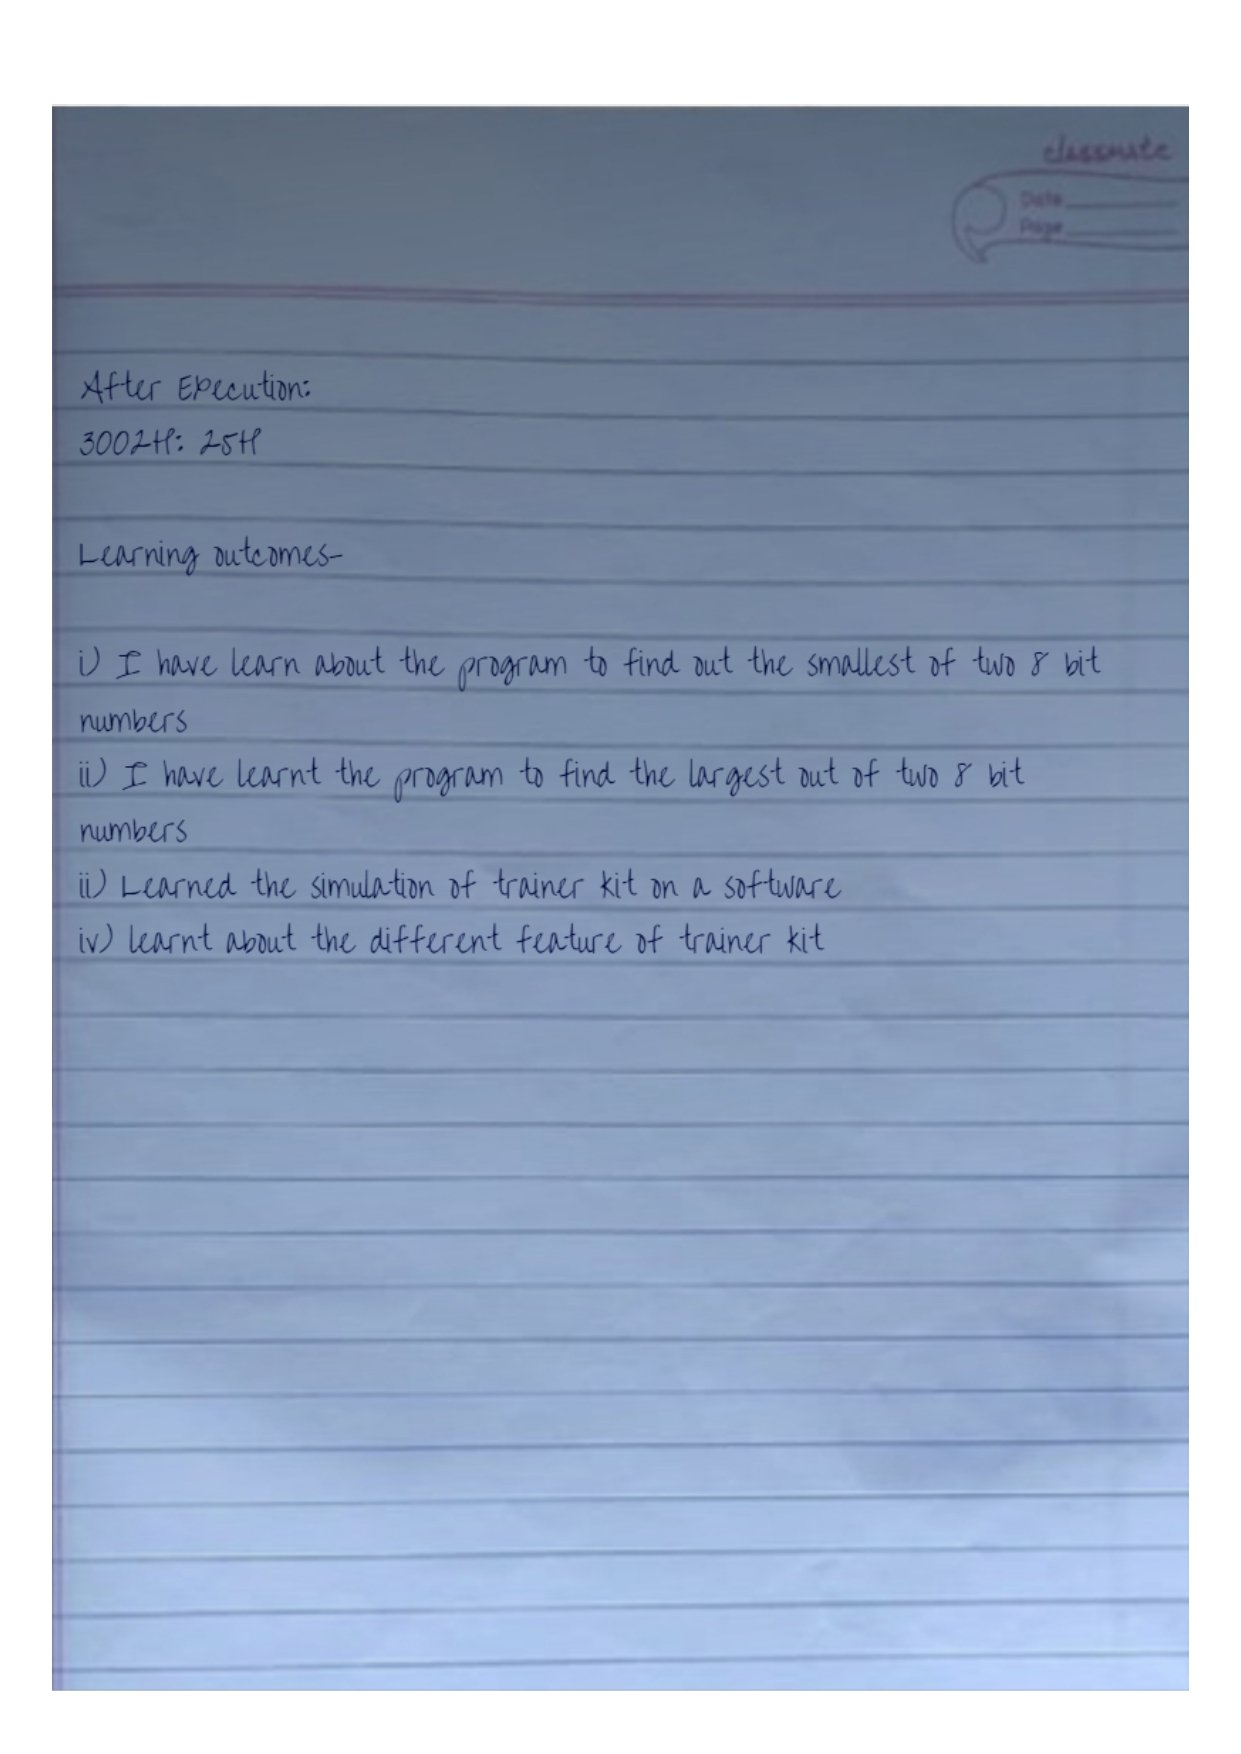 classmate
Date
Page
After Execution:
3002H: 25H
Learning outcomes-
i) I have learn about the program to find out the smallest of two 8 bit
numbers
ii) I have learnt the program to find the largest out of two 8 bit
numbers
ii) Learned the simulation of trainer kit on a software
iv) learnt about the different feature of trainer kit